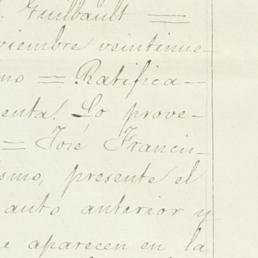 Guilbault =
viembre veintinue-
no = Ratifica-
enta. Lo prove-
= José Francis-
smo, presente el
auto anterior y
e aparecen en la